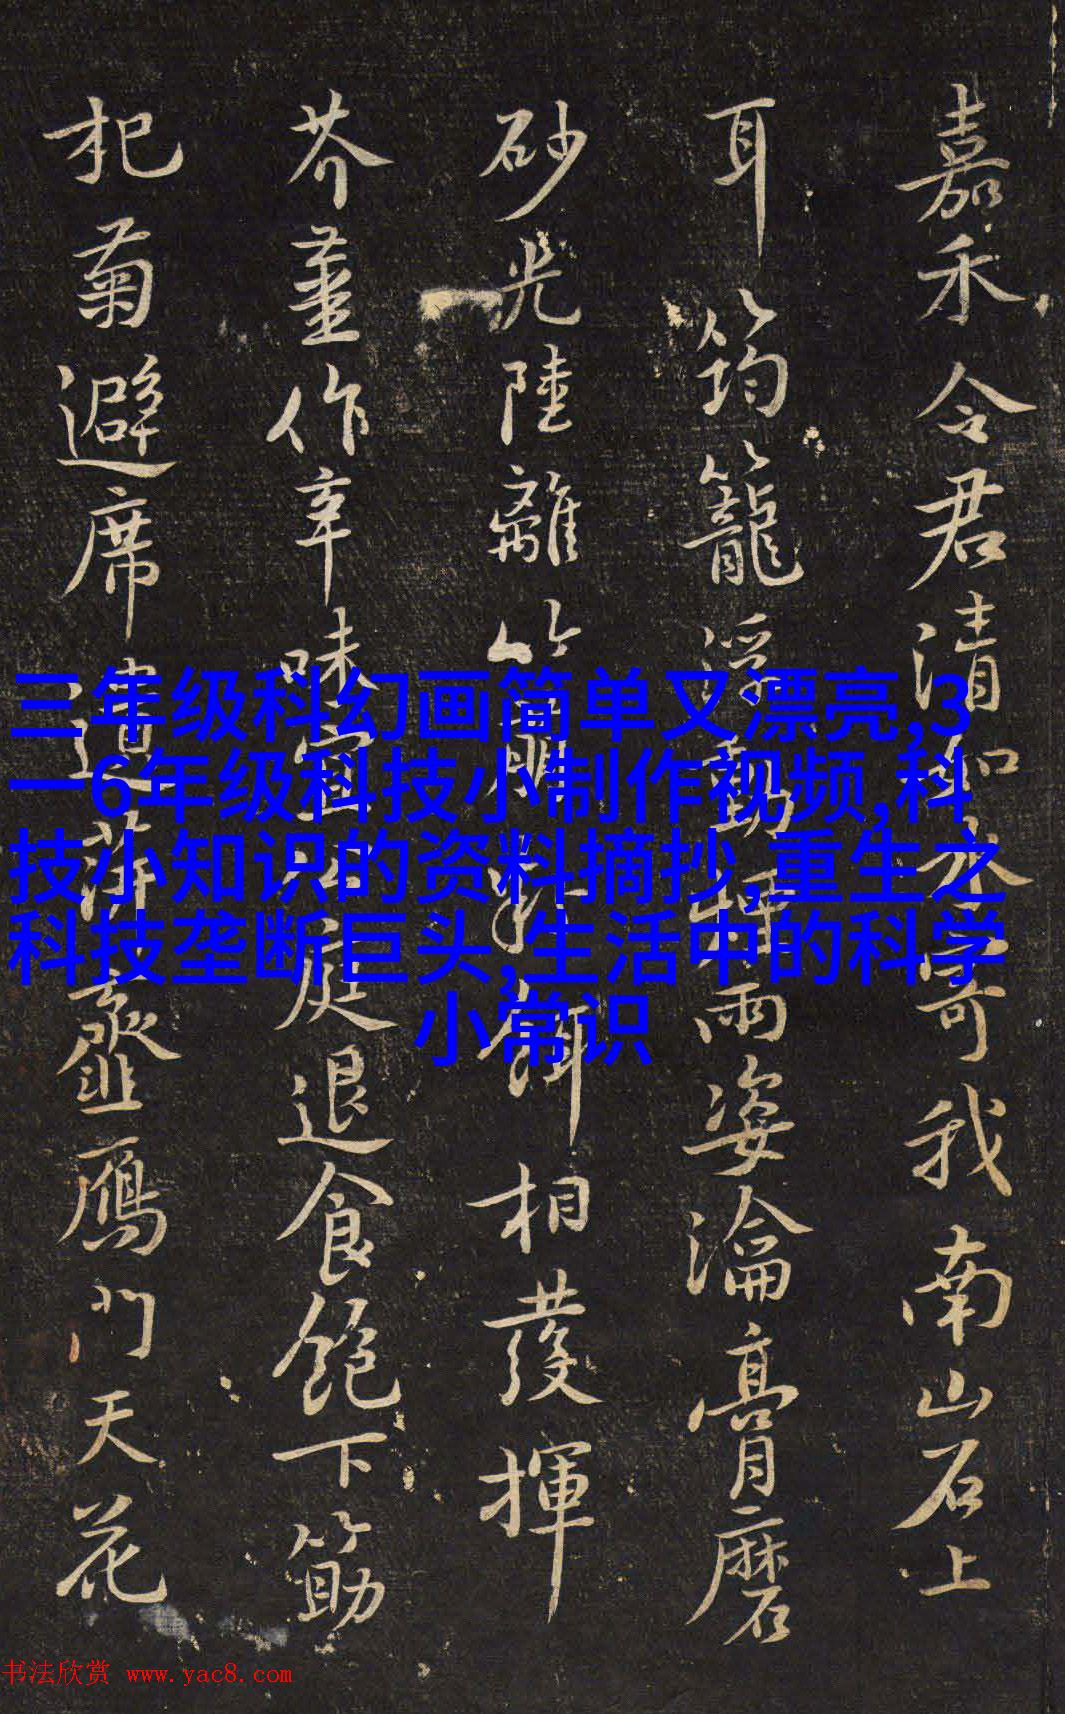 嘉禾令君清如氷寄我南山石上
耳筠籠浮動煙雨姿瀹膏磨
砂光陸離竹萌粉餌相發揮
芥薑作辛味宜公庭退食飽下筯
杞菊避席遺萍虀鴈門天花
三年级科幻画简单又漂亮,3
一6年级科技小制作视频,科
技小知识的资料摘抄,重生之
科技垄断巨头,生活中的科学
小常识
书法欣赏 www.yac8.com